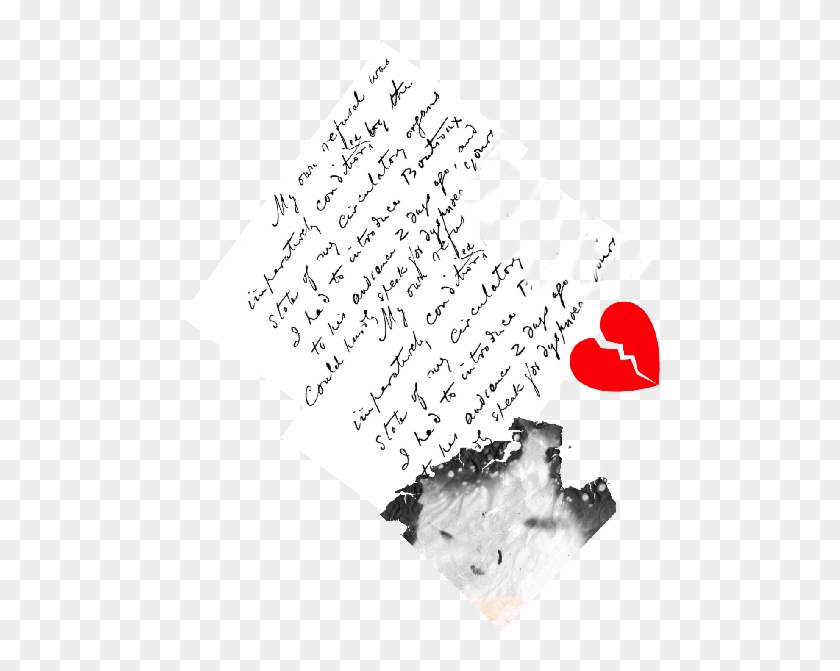 My own refusal was
imperatively conditioned by the
state of my circulatory organs
I had to introduce Boutroux
to his audience 2 days ago, and
could hardly speak for dyspnoea yours
My own refus
imperatively condition
state of my circulatory
I had to introduce
to his audience 2 days ago
speak for dyspnoea yours